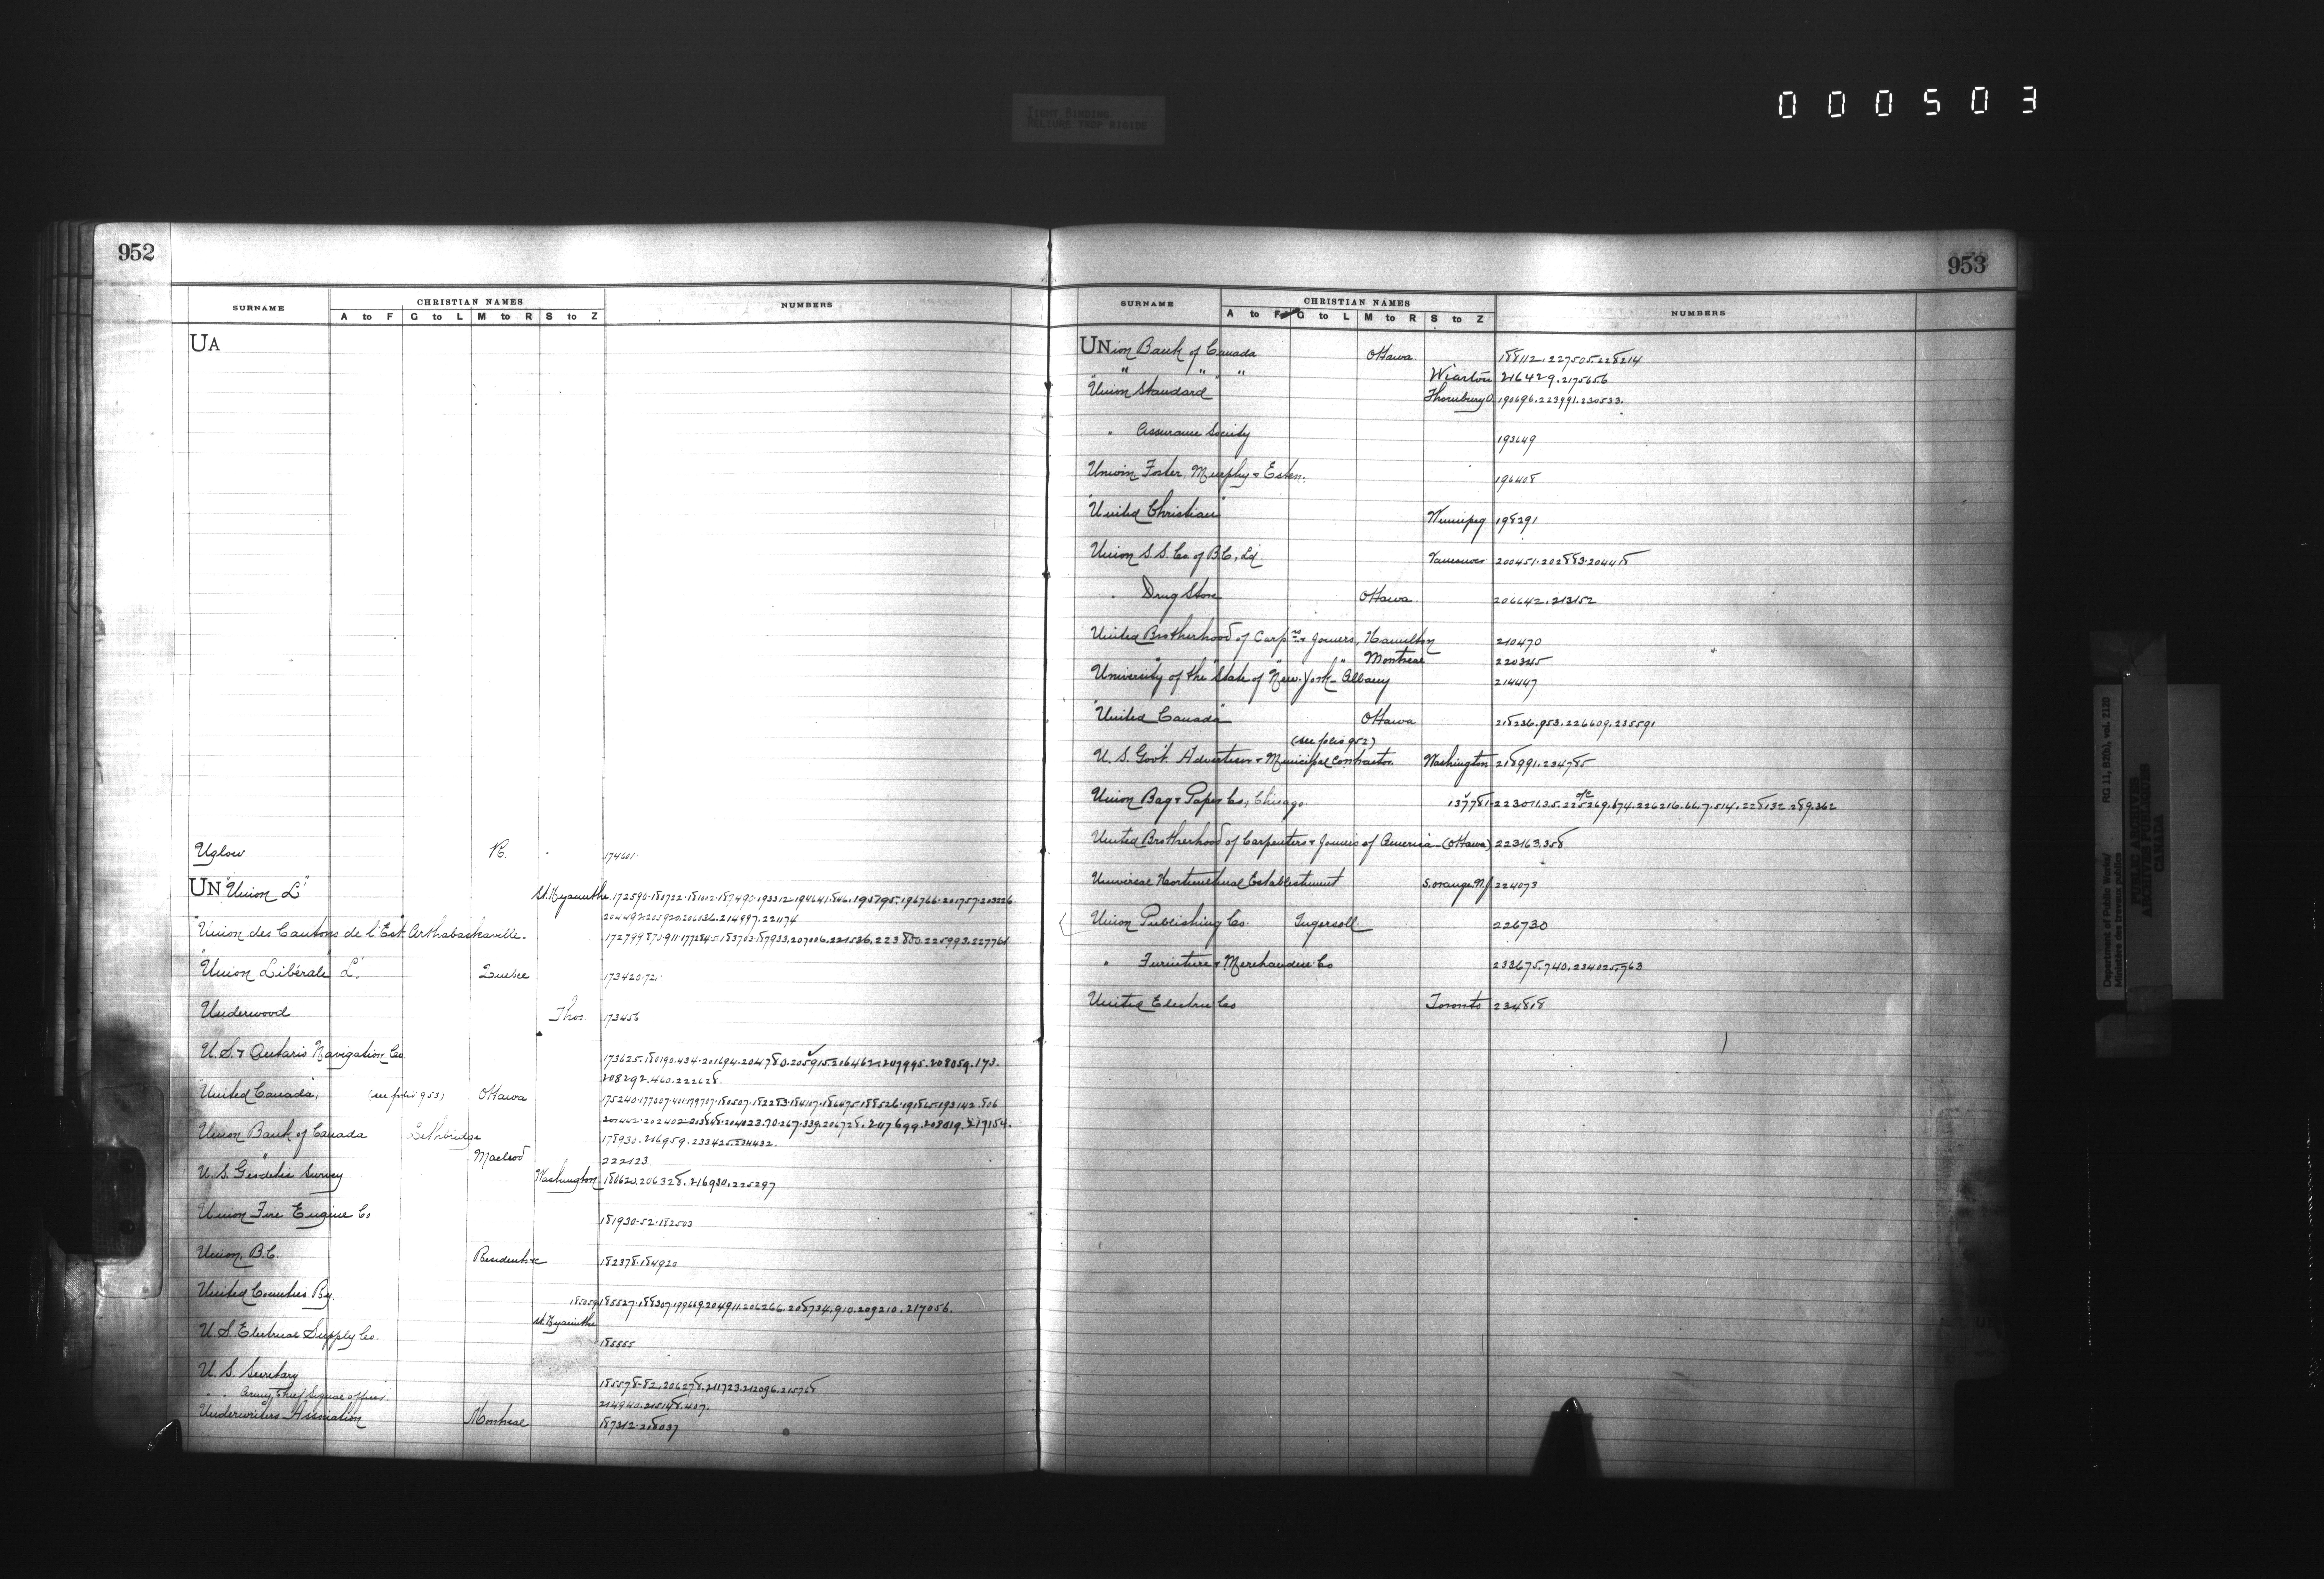 000503
TIGHT BINDING
RELIURE TROP RIGIDE
952
SURNAME CHRISTIAN NAMES NUMBERS
A to F G to L M to R S to Z
UA
Uglow R. 174601
UN "Union L'" St. Hyacinthe 172590.180722.181012.187490.193312.194641.846.195795.196766.201757.203226
204492.205920.206136.214997.221174
"Union des Cantons de l'Est" Arthabaskaville. 172799.870.911.177284.5.183703.187933.207006.221536.223800.225993.227761
"Union Libérale" L'. Quebec 173420.72
Underwood Thos. 173456
U.S. & Ontario Navigation Co. 173625.180190.434.201694.204780.205915.206462.207995.208059.173.
208292.460.222628.
"United Canada," (see folio 953) Ottawa 175240.177007.401.179707.181507.182283.184107.186475.188526.191865.193142.806
Union Bank of Canada Lethbridge 178930.216959.233425.834432.
" Macleod 222123
U.S. Geodetic Survey Washington 180620.206328.216930.225297
Union Fire Engine Co. 181930.52.182503
Union, B.C. Residents &c 182378.184920
United Counties Ry. 185059.185527.188307.199669.204911.206266.208734.910.209210.217056.
St. Hyacinthe
U.S. Electrical Supply Co. 185555
U.S. Secretary 185578.82.206278.211723.212096.215768
" " Army, Chief Signal officer 214940.215148.407.
Underwriters Association Montreal 187312.218037
953
SURNAME CHRISTIAN NAMES NUMBERS
A to F G to L M to R S to Z
UNion Bank of Canada Ottawa. 188112.227505.228214
" " " Wiarton 216429.217565.6
"Union Standard" Thornbury O. 190696.223991.230533.
" Assurance Society 193649
Unwin, Foster, Murphy & Esten. 196408
"United Christian" Winnipeg 198291
Union S.S. Co. of B.C., Ld. Vancouver 200451.202883.204418
" Drug Store Ottawa 206642.213152
United Brotherhood of Carprs & Joiners, Hamilton 210470
" " " Montreal 220345
University of the State of New-York - Albany 214447
"United Canada" Ottawa 218236.953.226609.235591
(see folio 952)
U.S. Govt. Advertiser & Municipal Contractor Washington 218991.234785
Union Bag & Paper Co., Chicago. 137781.223011.35.225269.674.226216.66.7.514.228132.289.362
United Brotherhood of Carpenters & Joiners of America - (Ottawa) 223163.358
Universal Horticultural Establishment S. Orange N.J. 224073
Union Publishing Co. Ingersoll 226730
" Furniture & Merchandise Co 233675.740.234025.963
United Electric Co Toronto 234818
Department of Public Works/ RG 11, B2(b), vol. 2120
Ministère des travaux publics
PUBLIC ARCHIVES
ARCHIVES PUBLIQUES
CANADA